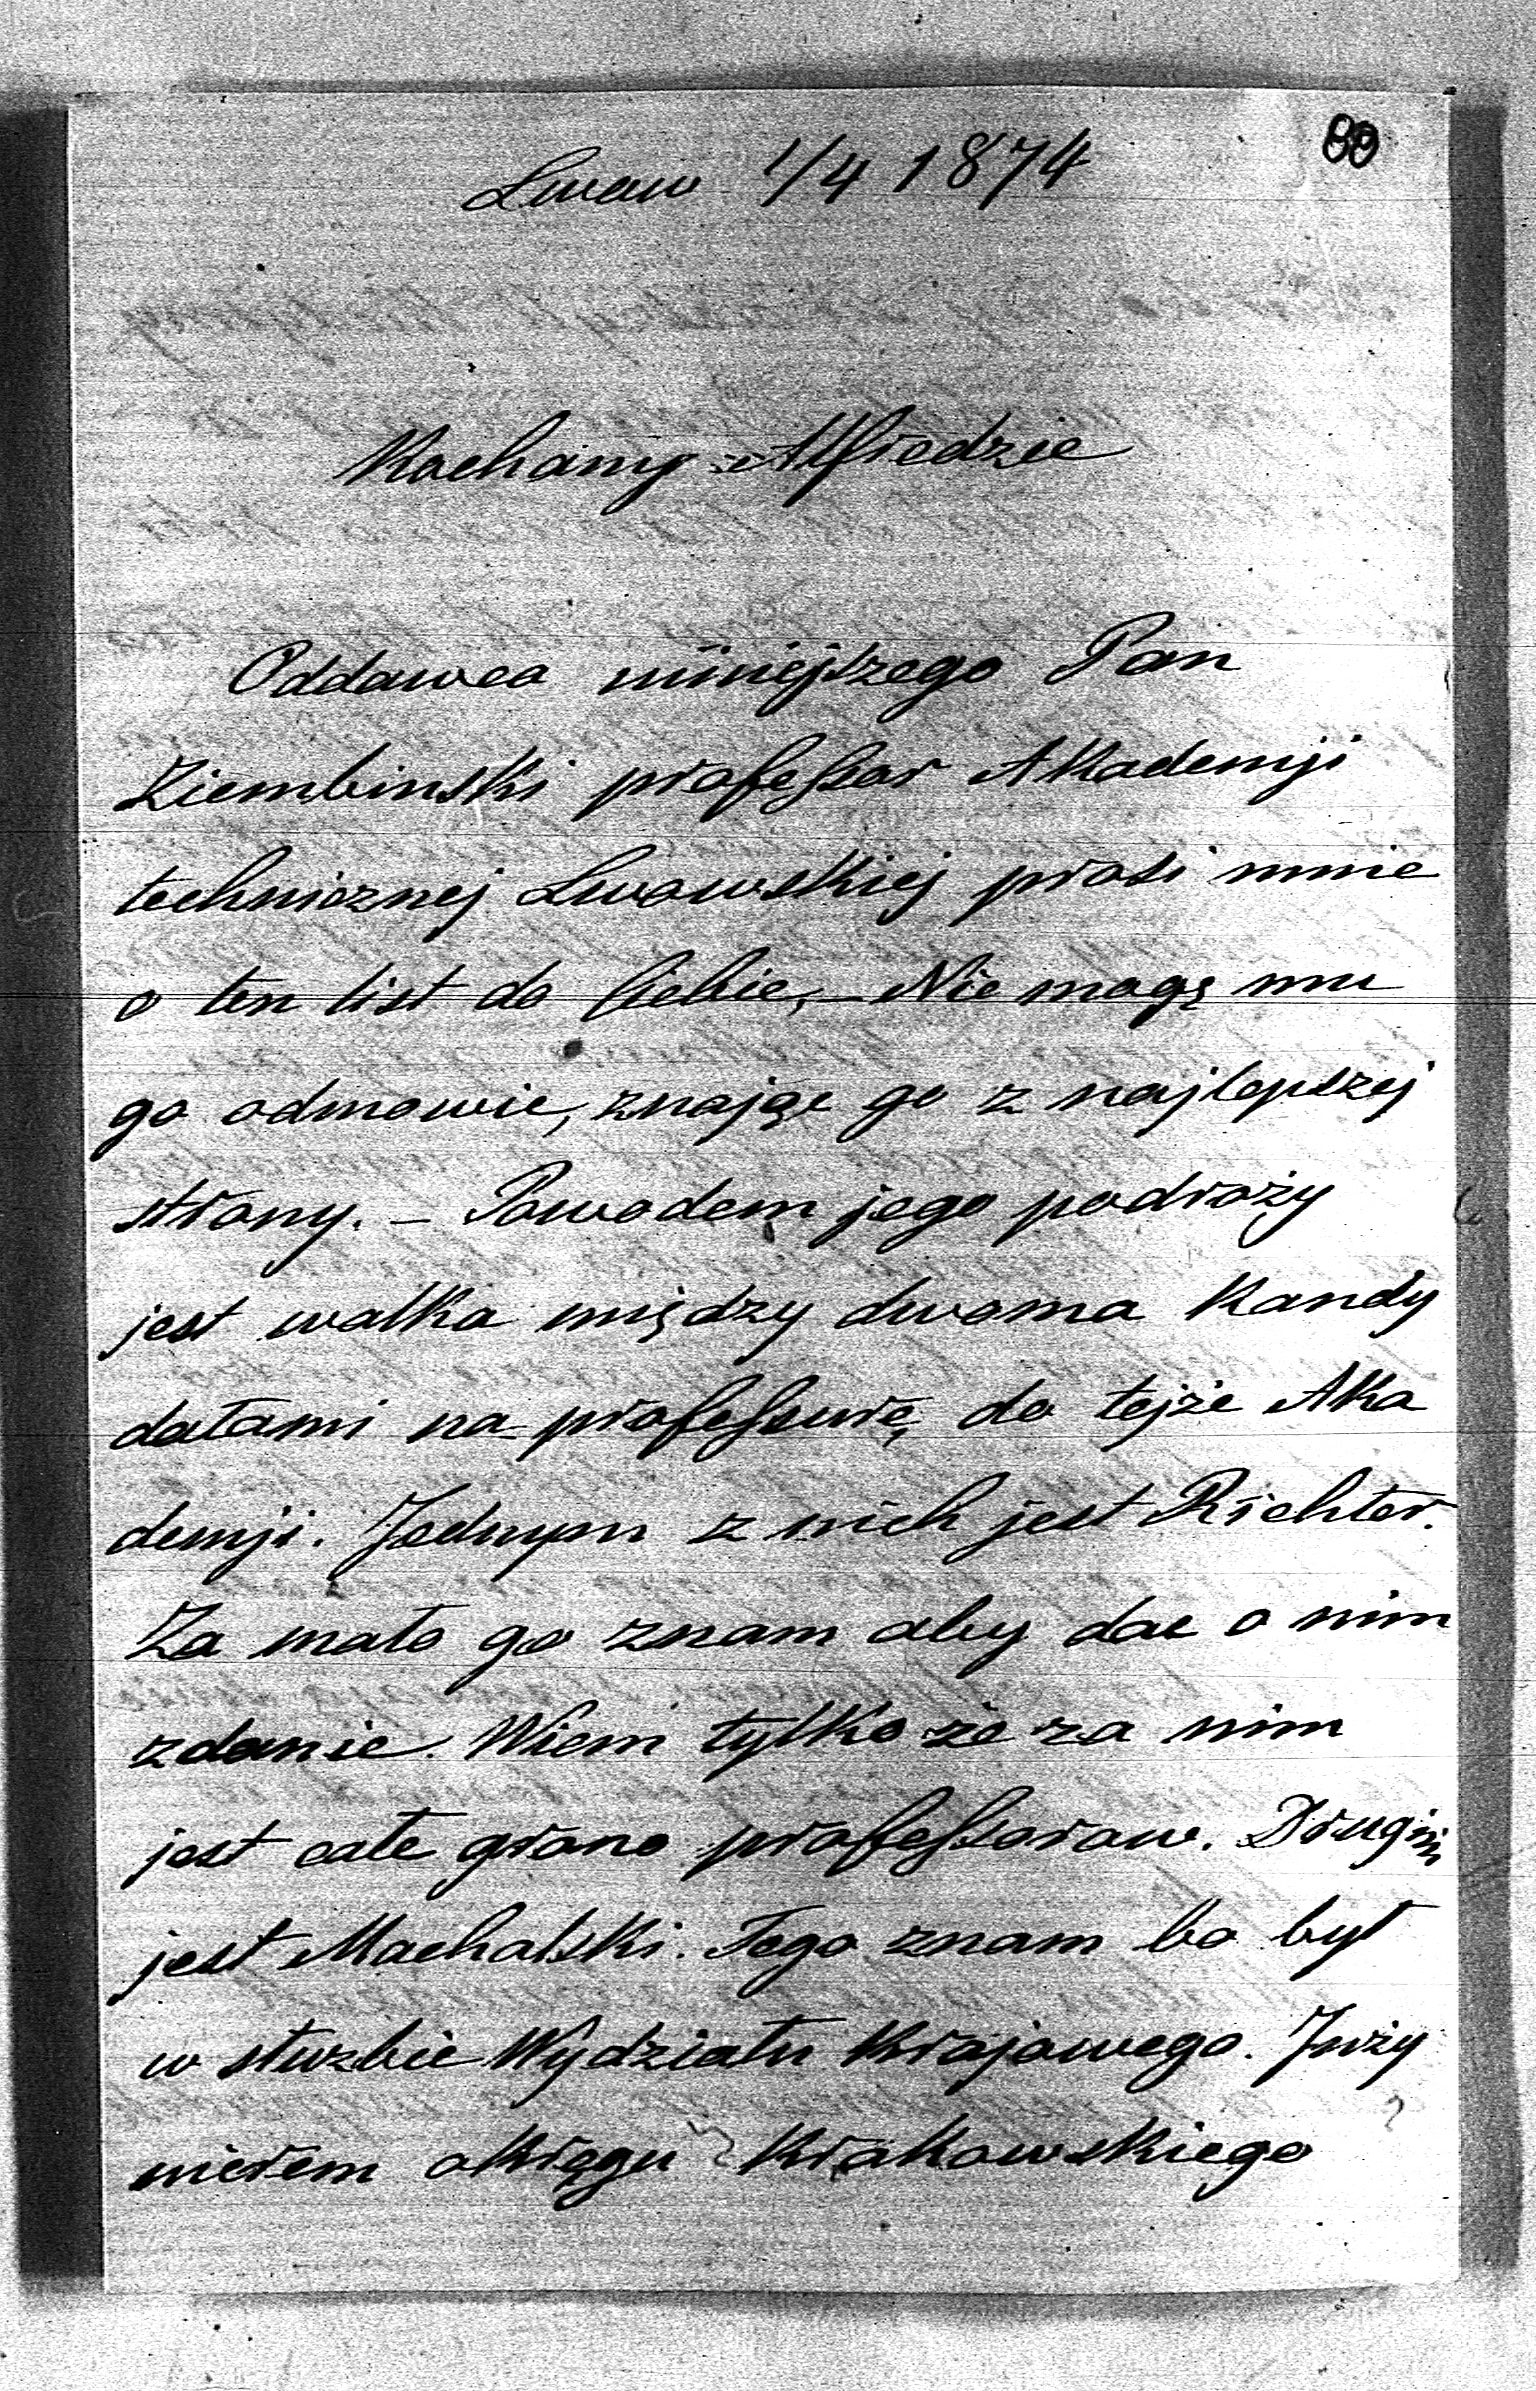 80
Lwow 1/4 1874
Kochany Alfredzie
Oddawca niniejszego Pan
Ziembinski professor Akademji
technicznej Lwowskiej prosi mnie
o ten list do Ciebie, – Nie mogę mu
go odmowic, znając go z najlepszej
strony. – Powodem jego podroży
jest walka między dwoma Kandy
datami na professurę, do tejże Aka
demji. Jednym z nich jest Richter.
Za mało go znam aby dac o nim
zdanie. Wiem tylko że za nim
jest całe grono professorow. Drugim
jest Machalski. Tego znam bo był
w służbie Wydziału Krajowego. Inży
nierem okręgu Krakowskiego